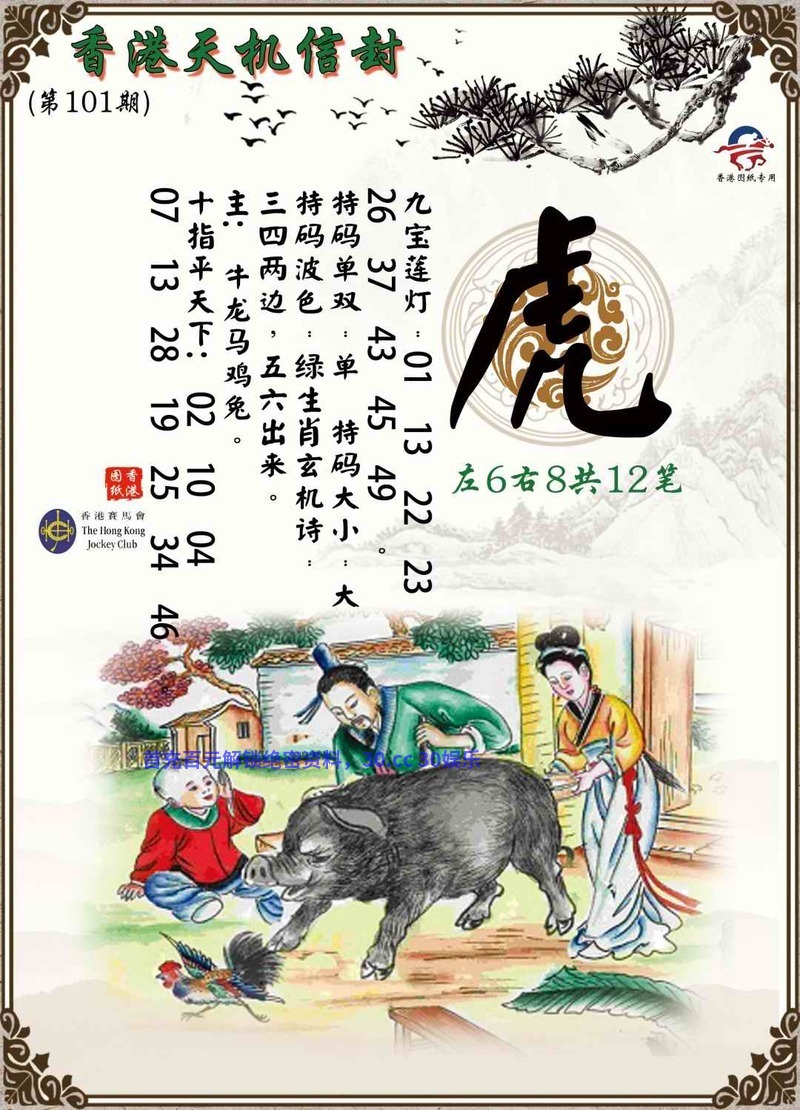 香港天机信封
(第101期)
香港图纸专用
虎
左6右8共12笔
九宝莲灯:01 13 22 23
26 37 43 45 49。
特码单双:单 特码大小:大
特码波色:绿生肖玄机诗:
三四两边,五六出来。
主:牛龙马鸡兔。
十指平天下:02 10 04
07 13 28 19 25 34 46
香港
图纸
香港賽馬會
The Hong Kong
Jockey Club
首充百元解锁绝密资料,30.cc 30娱乐